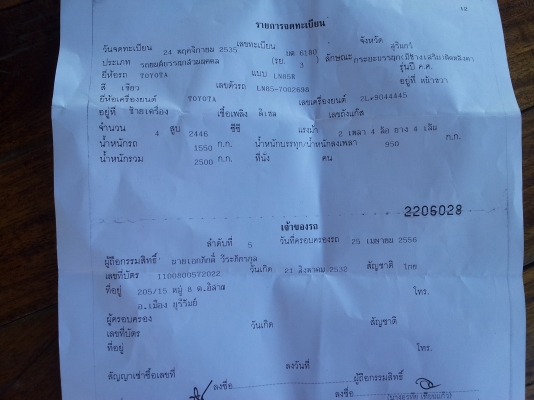 12
รายการจดทะเบียน
วันจดทะเบียน 24 พฤศจิกายน 2535 เลขทะเบียน บต 6180 จังหวัด สุรินทร์
ประเภท รถยนต์บรรทุกส่วนบุคคล (รย. 3 ) ลักษณะ กระบะบรรทุก
ยี่ห้อรถ TOYOTA แบบ LN85R รุ่นปี ค.ศ.
สี เขียว เลขตัวรถ LN85-7002698 อยู่ที่
ยี่ห้อเครื่องยนต์ TOYOTA เลขเครื่องยนต์ 2L-9044445
อยู่ที่ ซ้ายเครื่อง เชื้อเพลิง ดีเซล เลขถังแก๊ส
จำนวน 4 สูบ 2446 ซีซี แรงม้า 2 เพลา 4 ล้อ ยาง 4 เส้น
น้ำหนักรถ 1550 ก.ก. น้ำหนักบรรทุก/น้ำหนักลงเพลา 950 ก.ก.
น้ำหนักรวม 2500 ก.ก. ที่นั่ง คน
2206028
เจ้าของรถ
ลำดับที่ 5 วันที่ครอบครองรถ 25 เมษายน 2556
ผู้ถือกรรมสิทธิ์ นายเอกภักดิ์ วีระภัทรกุล
เลขที่บัตร 1100800572022 วันเกิด 21 สิงหาคม 2532 สัญชาติ ไทย
ที่อยู่ 205/15 หมู่ 8 ต.อิสาณ โทร.
อ.เมือง บุรีรัมย์
ผู้ครอบครอง
เลขที่บัตร วันเกิด สัญชาติ
ที่อยู่ โทร.
สัญญาเช่าซื้อเลขที่ ลงวันที่ ผู้ถือกรรมสิทธิ์
ลงชื่อ ลงชื่อ